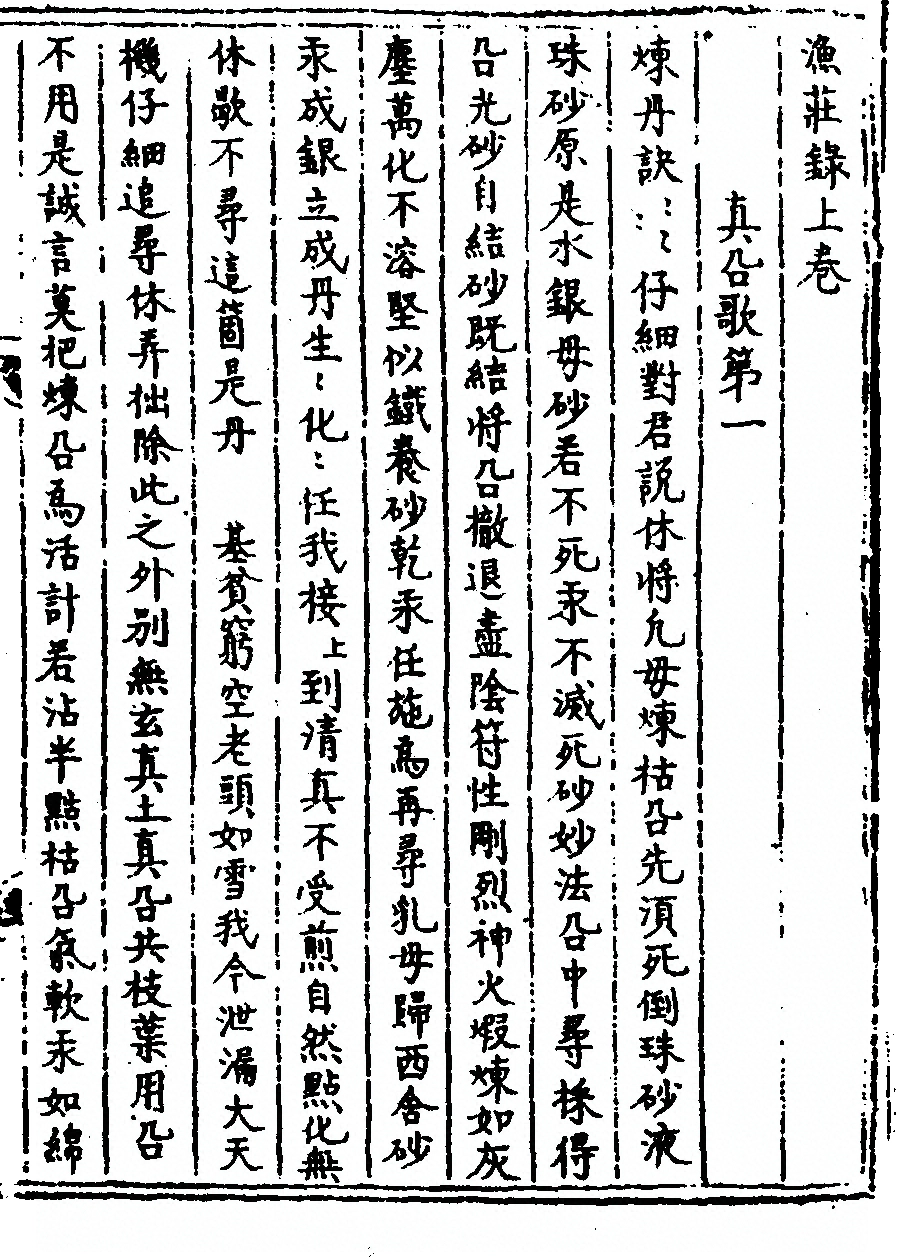 漁莊錄上卷
真鈆歌第一
煉丹訣〻〻〻仔細對君說休將凢母煉枯鈆先湏死倒珠砂液
珠砂原是水銀母砂若不死汞不滅死砂妙法鈆中尋採得
鈆光砂自結砂既結將鈆撤退盡陰符性剛烈神火煆煉如灰
塵萬化不溶堅似鐵養砂乾汞任施為再尋乳母歸西舍砂
汞成銀立成丹生〻化〻任我接上到清真不受煎自然點化無
休歇不尋這箇是丹 基貧窮空老頭如雪我今泄漏大天
機仔細追尋休弄拙除此之外別無玄真土真鈆共枝葉用鈆
不用是誠言莫把煉鈆為活計若沾半點枯鈆氣軟汞如綿